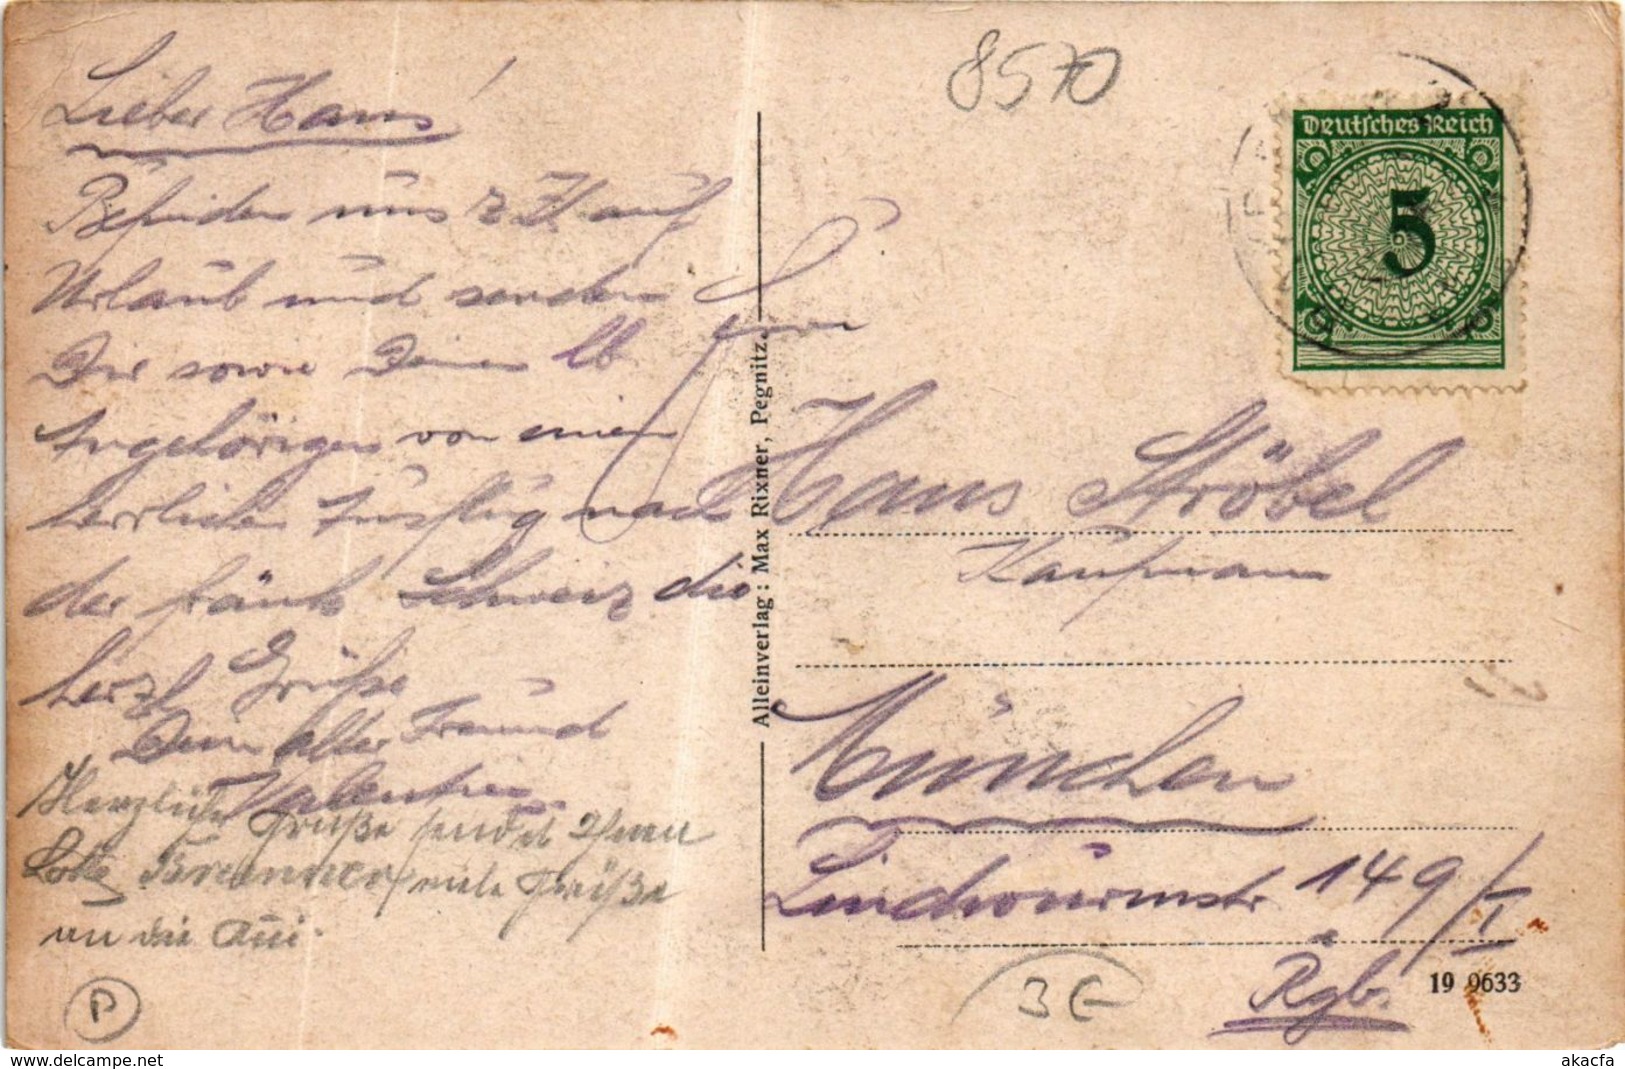 Lieber Hans!
Befinden uns z Zt auf
Urlaub und senden
Dir sowie Deinen lb
Angehörigen von einem
herrlichen Ausflug nach
der fränk Schweiz die
herzl Grüße
Dein alter Freund
Valentin
Herzliche Grüße sendet Ihnen
Lotte Brenner, viele Grüße
an die
P
Alleinverlag: Max Rixner, Pegnitz.
8570
Deutsches Reich
5
Herrn
Hans Ströbel
Kaufmann
München
Lindwurmstr 149/I
Rgb.
3 E
19 9633
akacfa-delcampe.net
akacfa